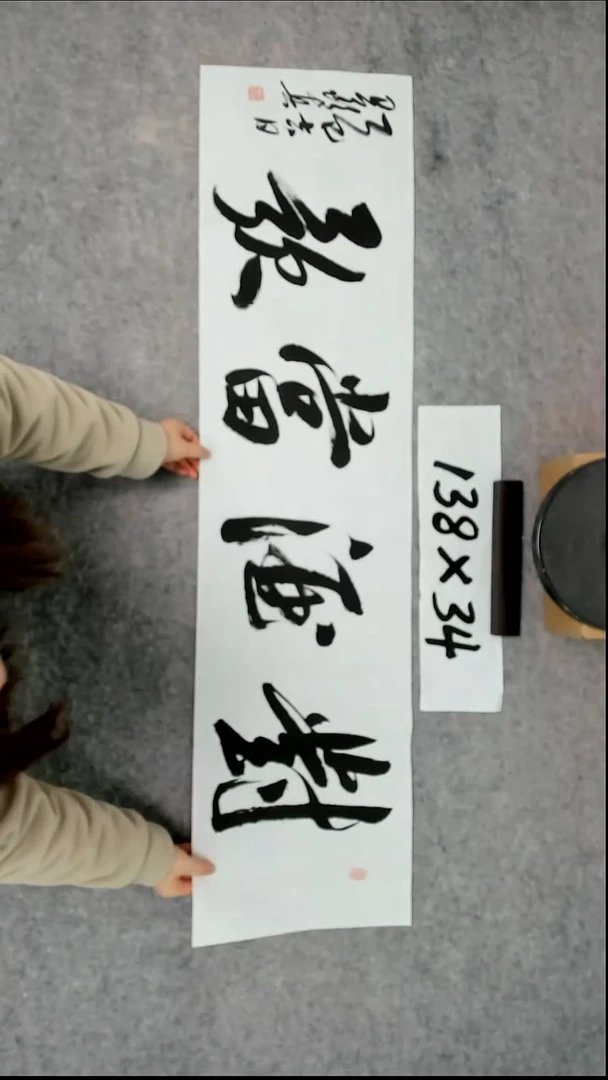 對酒當歌
138×34